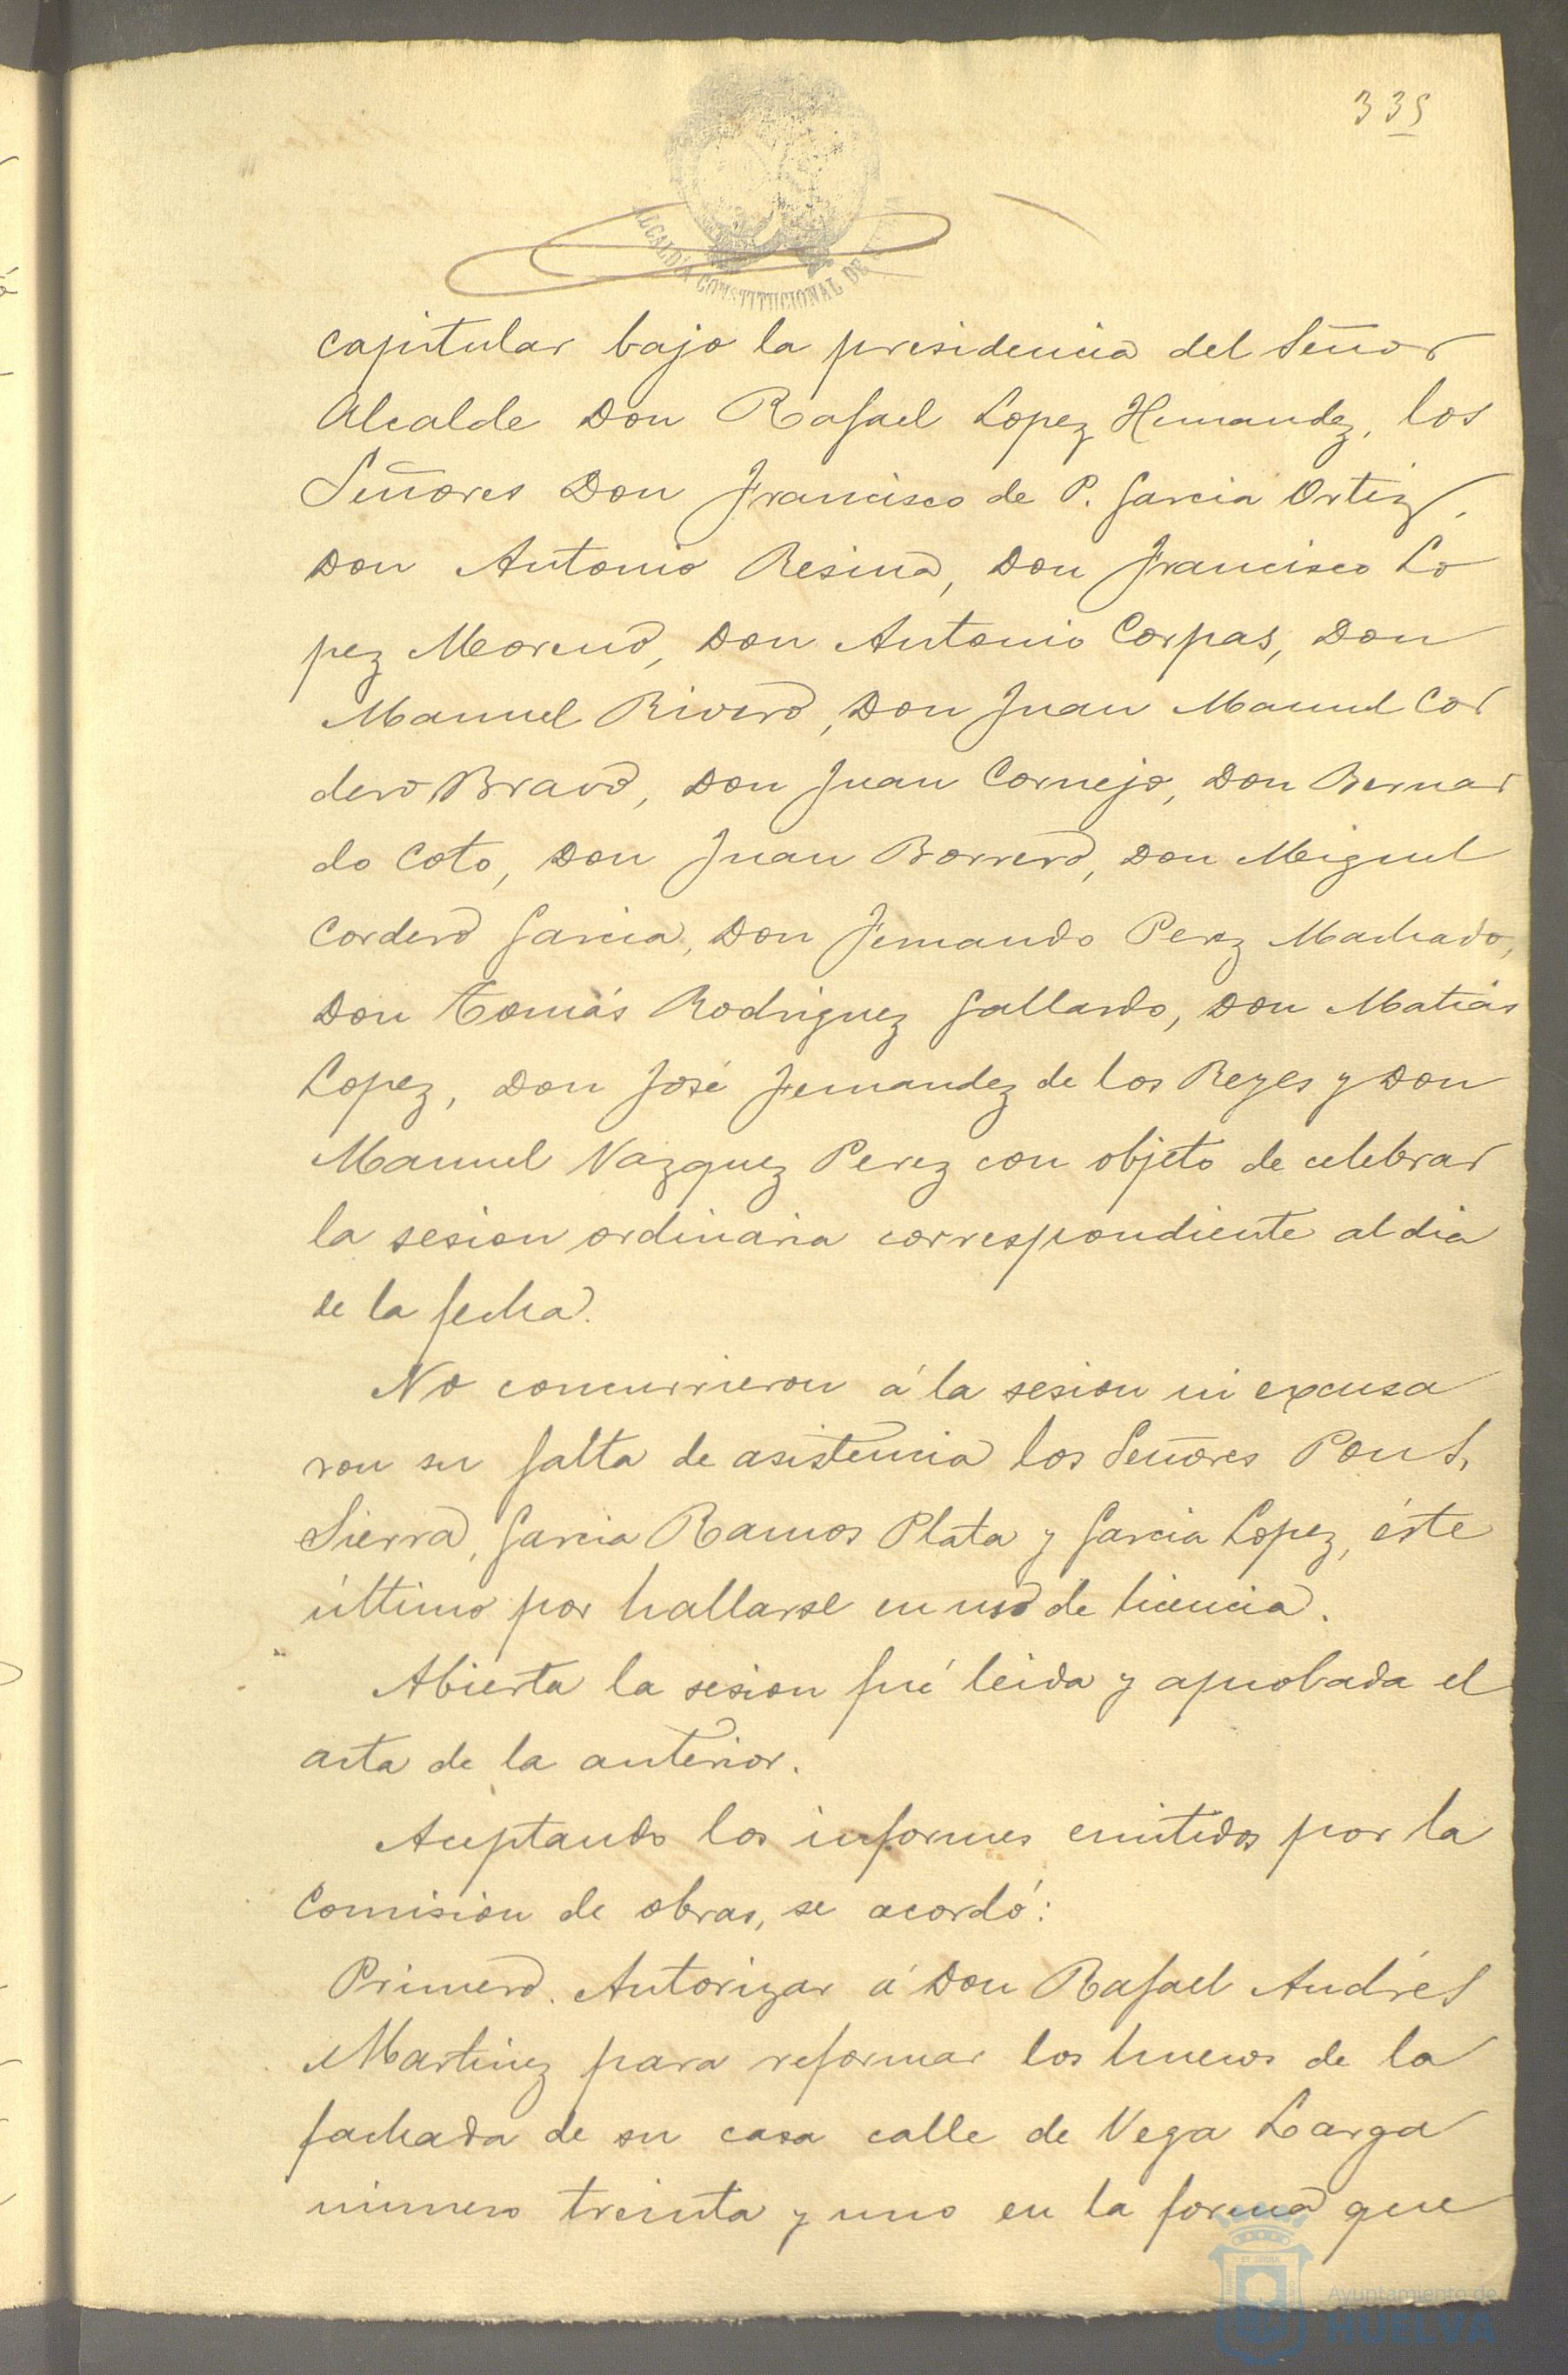 335
ALCALDÍA CONSTITUCIONAL DE
capitular bajo la presidencia del Señor
Alcalde Don Rafael Lopez Hernandez, los
Señores Don Francisco de P. Garcia Ortiz,
Don Antonio Resina, Don Francisco Lo
pez Moreno, Don Antonio Corpas, Don
Manuel Rivero, Don Juan Manuel Cor
dero Bravo, Don Juan Cornejo, Don Bernar
do Coto, Don Juan Borrero, Don Miguel
Cordero Garcia, Don Fernando Perez Machado,
Don Tomás Rodriguez Gallardo, Don Matias
Lopez, Don José Fernandez de los Reyes y Don
Manuel Vazquez Perez con objeto de celebrar
la sesion ordinaria correspondiente al dia
de la fecha.
No concurrieron á la sesion ni excusa
ron su falta de asistencia los Señores Pons,
Sierra, Garcia Ramos Plata y Garcia Lopez, éste
último por hallarse en uso de licencia.
Abierta la sesion fué leida y aprobada el
acta de la anterior.
Aceptando los informes emitidos por la
Comision de obras, se acordó:
Primero. Autorizar á Don Rafael Andrés
Martinez para reformar los huecos de la
fachada de su casa calle de Vega Larga
número treinta y uno en la forma que
Ayuntamiento de
HUELVA